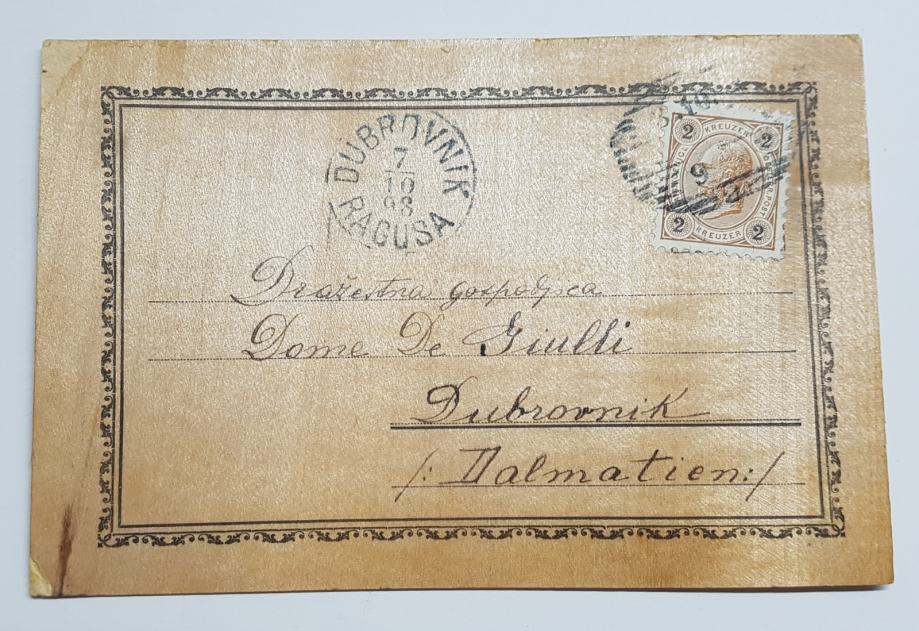 DUBROVNIK
7
10
98
RAGUSA
2 KREUZER 2
2 KREUZER 2
Dražestna gospodjica
Dome De Giulli
Dubrovnik
/: Dalmatien :/